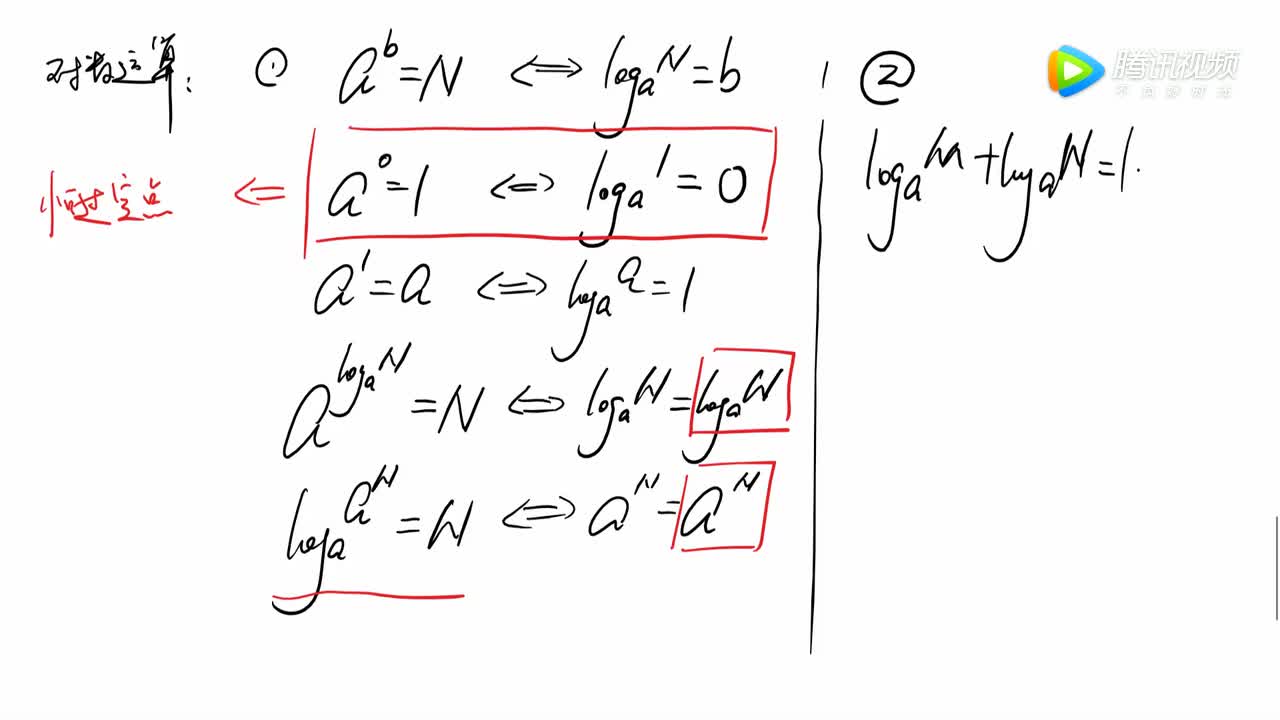 对数运算: ① a^b=N ⇔ log_a N=b
恒过定点 ⇐ a^0=1 ⇔ log_a 1=0
a^1=a ⇔ log_a a=1
a^{log_a N}=N ⇔ log_a N=log_a N
log_a a^N=N ⇔ a^N=a^N
②
log_a M+log_a N=1.
腾讯视频
不负好时光